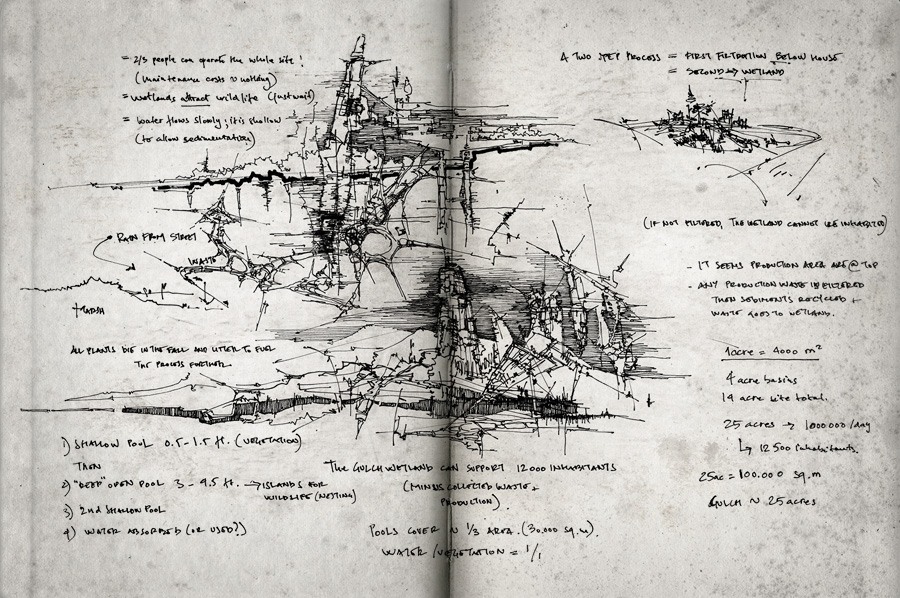 = 2/3 people can operate the whole site!
(maintenance costs ≈ nothing)
= wetlands attract wild life (just wait)
= water flows slowly; it is shallow
(to allow sedimentation)
RAIN FROM STREET
WASTE
MARSH
ALL PLANTS DIE IN THE FALL AND LITTER TO FUEL
THE PROCESS FURTHER
1) SHALLOW POOL 0.5-1.5 ft. (VEGETATION)
THEN
2) "DEEP" OPEN POOL 3-4.5 ft. → ISLANDS FOR
WILDLIFE (NESTING)
3) 2nd SHALLOW POOL
4) WATER ABSORBED (OR USED?)
THE GULCH WETLAND CAN SUPPORT 12000 INHABITANTS
(MINUS COLLECTED WASTE +
PRODUCTION)
POOLS COVER ~ 1/3 AREA. (30.000 sq.m).
WATER/VEGETATION = 1/1
A TWO STEP PROCESS = FIRST FILTRATION BELOW HOUSE
= SECOND → WETLAND
(IF NOT FILTERED, THE WETLAND CANNOT BE INHABITED)
- IT SEEMS PRODUCTION AREA ARE @ TOP
- ANY PRODUCTION WASTE IS FILTERED
THEN SEDIMENTS RECYCLED +
WASTE GOES TO WETLAND.
1 acre = 4000 m²
4 acre basins
14 acre site total.
25 acres → 1000000/day
↳ 12500 inhabitants.
25ac = 100.000 sq.m
GULCH ~ 25 acres